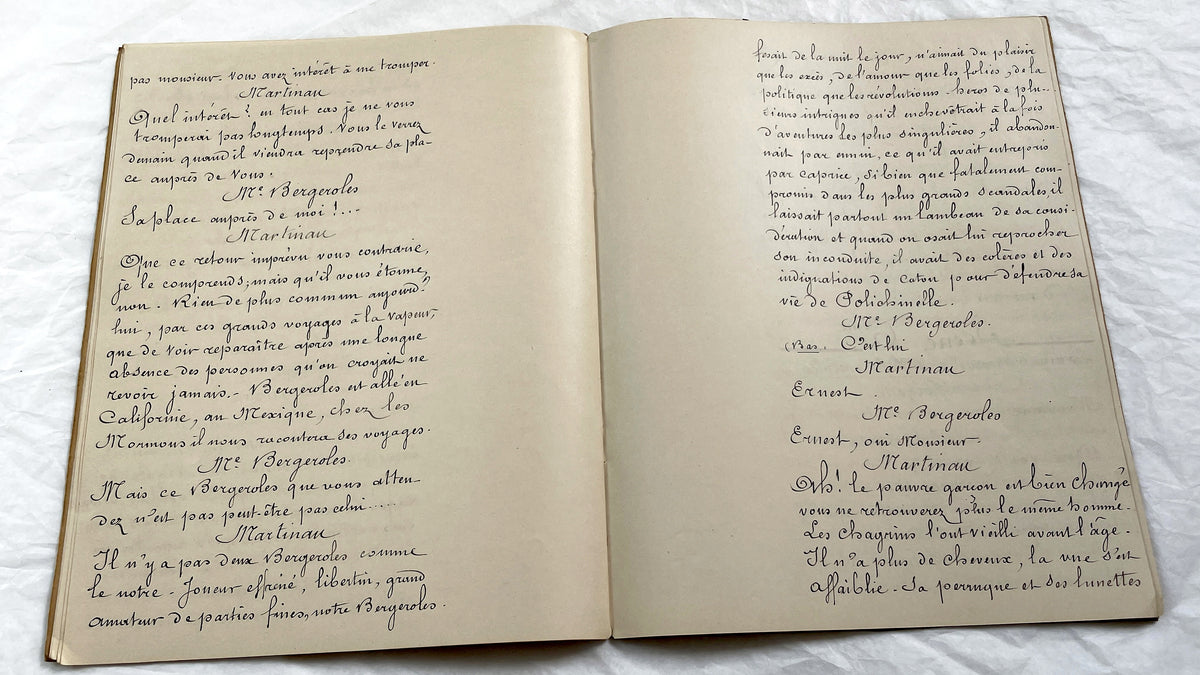 pas monsieur. Vous avez intérêt à me tromper.
Martinau
Quel intérêt? en tout cas je ne vous
tromperai pas longtemps. Vous le verrez
demain quand il viendra reprendre sa pla-
ce auprès de Vous.
Me Bergeroles
Sa place auprès de moi !...
Martinau
Que ce retour imprévu vous contrarie,
je le comprends; mais qu'il vous étonne,
non. Rien de plus commun aujourd'
hui, par ces grands voyages à la vapeur,
que de voir reparaître après une longue
absence des personnes qu'on croyait ne
revoir jamais. - Bergeroles est allé en
Californie, au Mexique, chez les
Mormons il nous racontera ses voyages.
Me Bergeroles.
Mais ce Bergeroles que vous atten
dez n'est pas peut-être pas celui.....
Martinau
Il n'y a pas deux Bergeroles comme
le notre - Joueur effréné, libertin, grand
amateur de parties fines, notre Bergeroles.
fesait de la nuit le jour, n'aimait du plaisir
que les excès, de l'amour que les folies, de la
politique que les révolutions. heros de plu-
sieurs intrigues qu'il enchevêtrait à la fois
d'aventures les plus singulières, il abandon-
nait par ennui, ce qu'il avait entrepris
par caprice, Si bien que fatalement com-
promis dans les plus grands scandales, il
laissait partout un lambeau de sa consi-
dération et quand on osait lui reprocher
son inconduite, il avait des colères et des
indignations de Caton pour d'éfendre sa
vie de Polichinelle.
Me Bergeroles.
(Bas. C'est lui
Martinau
Ernest.
Me Bergeroles
Ernest, oui Monsieur.
Martinau
Oh! le pauvre garçon est bien changé
vous ne retrouverez plus le même homme.
Les chagrins l'ont vieilli avant l'âge.
Il n'a plus de cheveux, la vue s'est
affaiblie. Sa perruque et ses lunettes